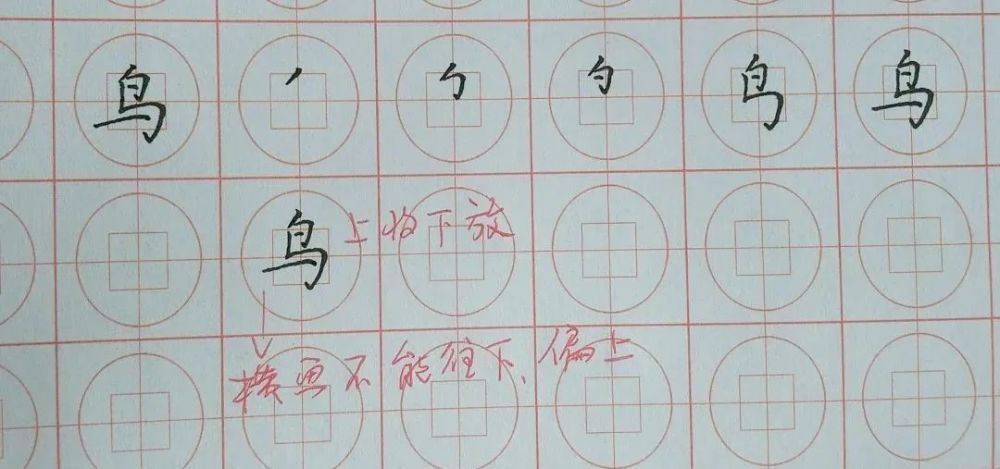 鸟 丿 鸟
鸟 上收下放
横画不能往下、偏上